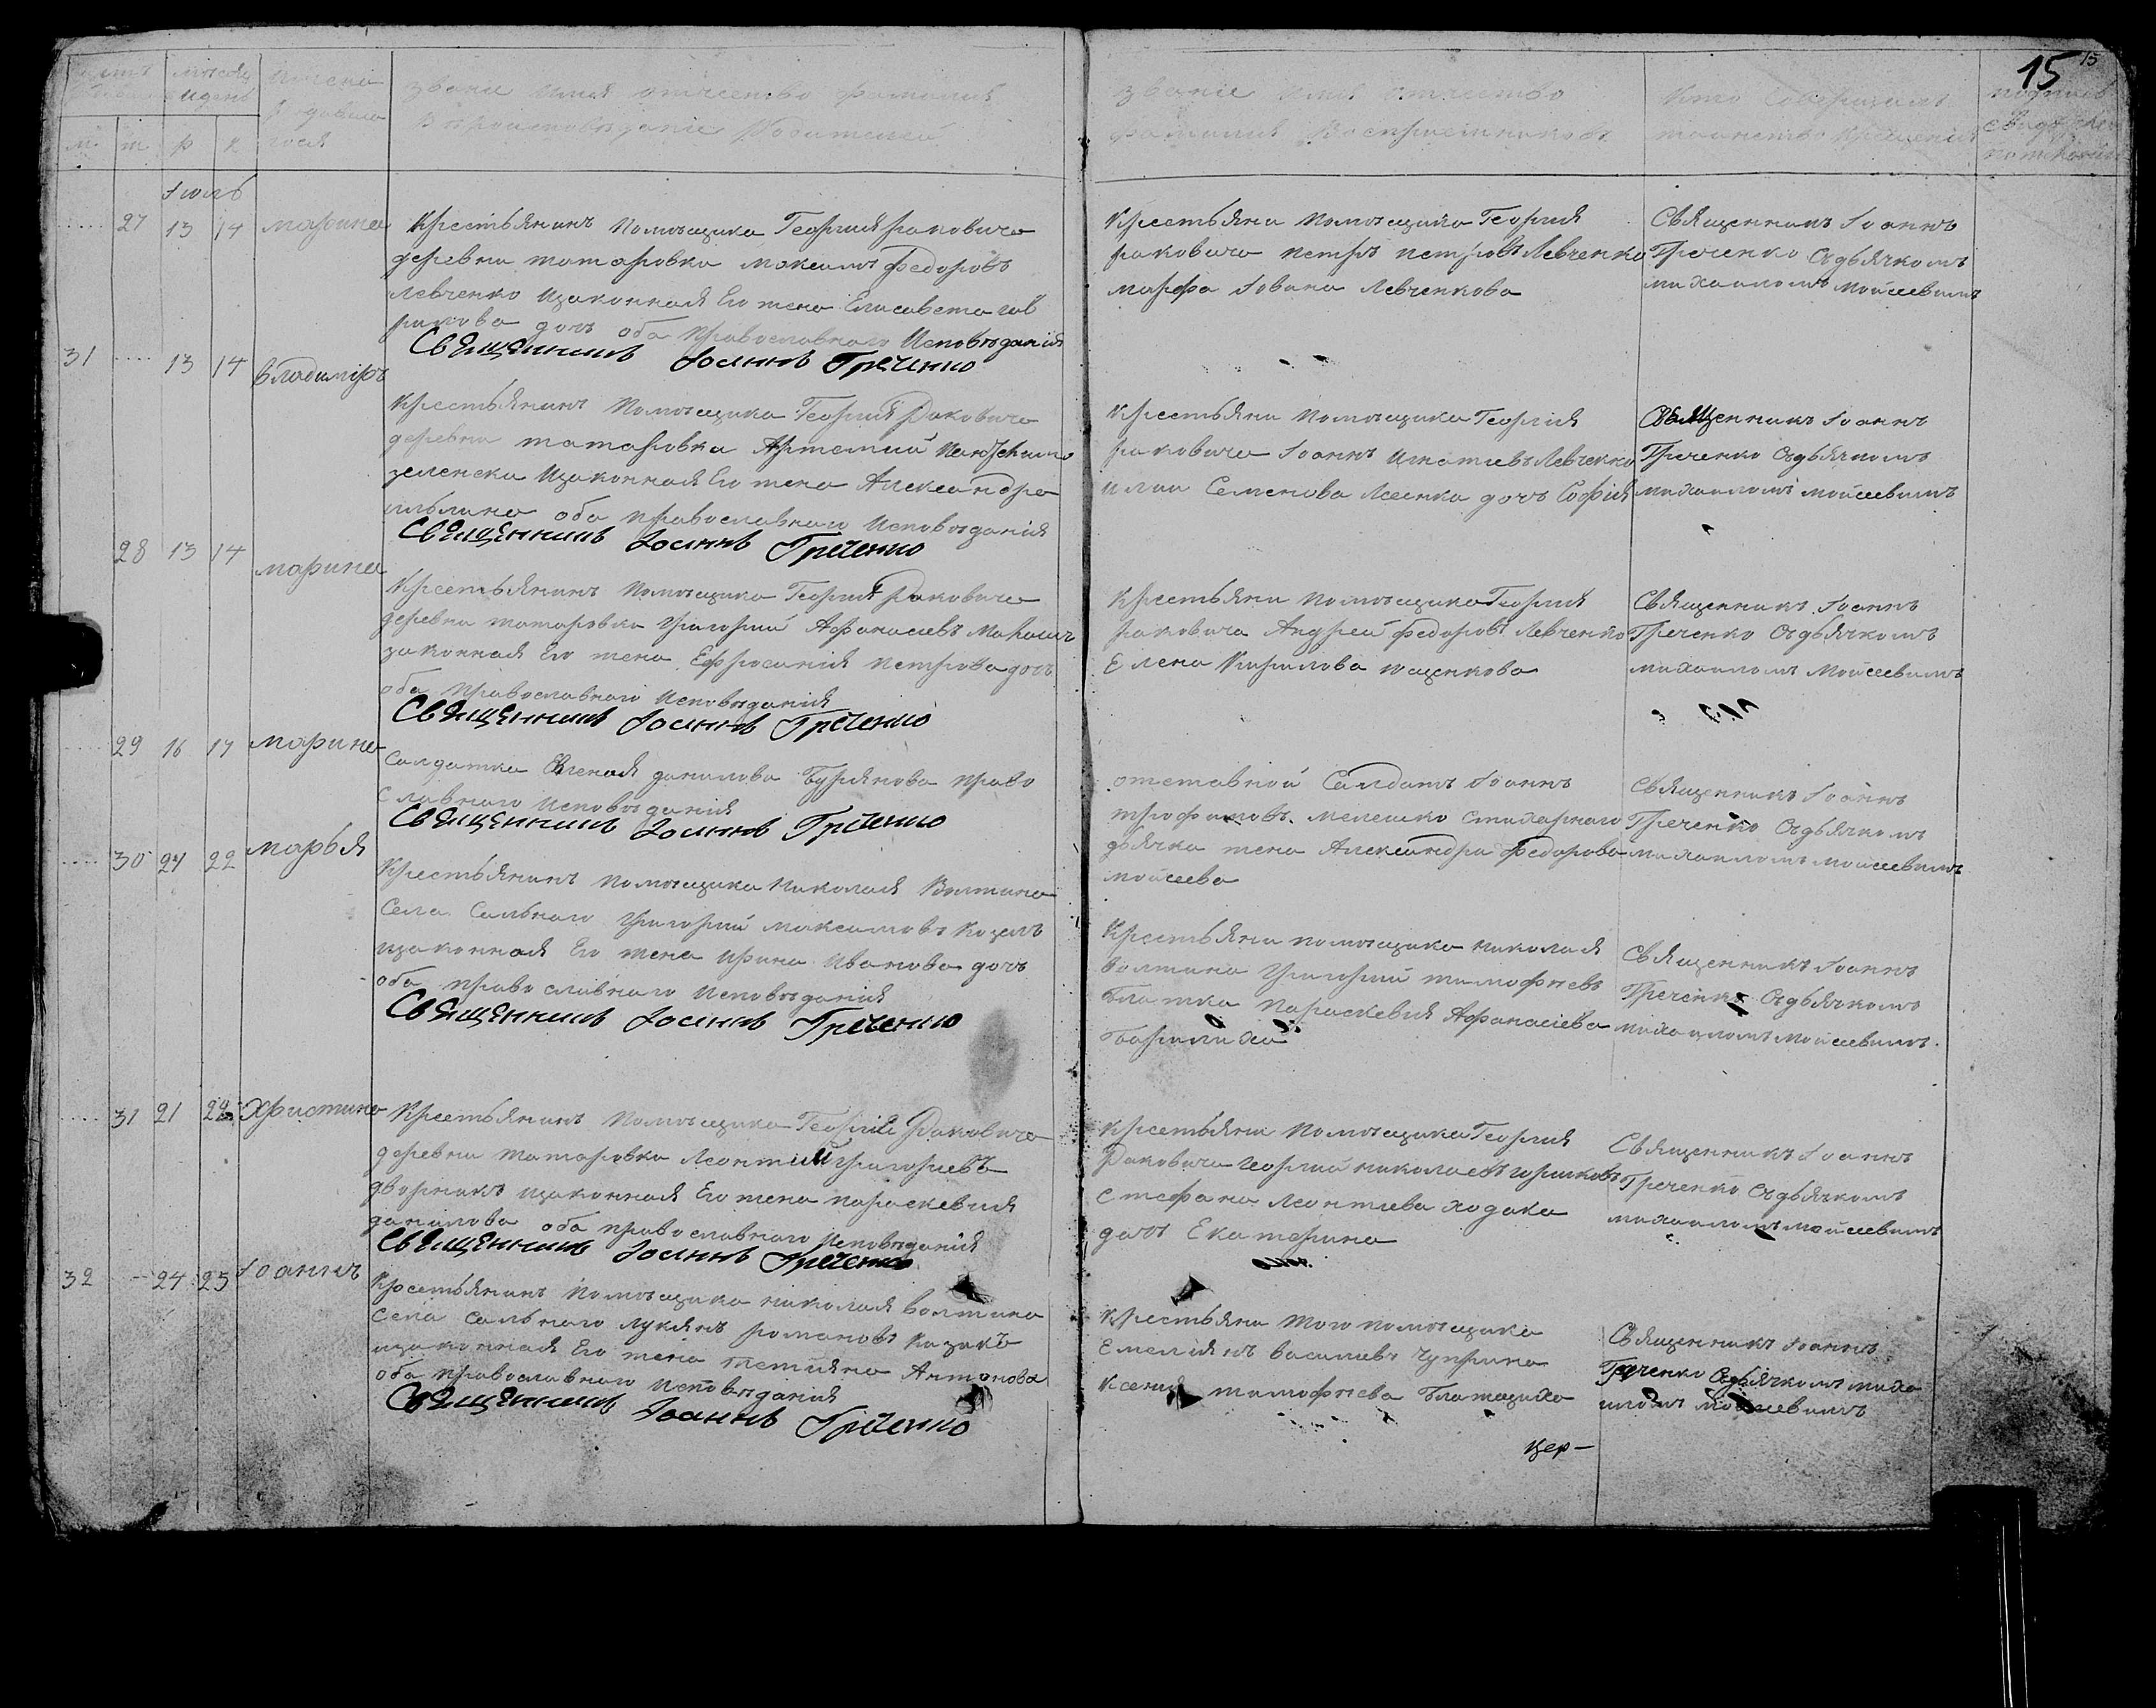 15
15
счетъ мѣсяц имена званіе имя отчество фамилія
и день и вѣроисповѣданіе Родителей
м. ж р к
званіе имя отчество
фамилія Воспріемниковъ
кто Совершалъ
таинство крещенія
Іюль
27 13 14 марина
Крестьянинъ помѣщика Георгія раковича
деревни татаровки максимъ федоровъ
левченко изаконная Его жена Елисавета гав
рилова дочь оба православнаго Исповѣданія
Священникъ Іоаннъ Греченко
Крестьяни помѣщика Георгія
раковича петръ петровъ Левченко
марфа Іована Левченкова
Священникъ Іоаннъ
Греченко Съдьячкомъ
михаиломъ моисеевимъ
31 13 14 владимиръ
Крестьянинъ помѣщика Георгія Раковича
деревни татаровка Артемий
зеленски изаконная Его жена Александра
оба православнаго Исповѣданія
Священникъ Іоаннъ Греченко
Крестьяни помѣщика Георгія
раковича Іоаннъ Игнатиевъ Левченко
Семенова дочъ Софія
Священникъ Іоаннъ
Греченко Съдьячкомъ
михаиломъ моисеевимъ
28 13 14 марина
Крестьянинъ помѣщика Георгія Раковича
деревни татаровки григорий Афанасиевъ
законная Его жена Ефросинія петрова дочъ
оба православнаго исповѣданія
Священникъ Іоаннъ Греченко
Крестьяни помѣщика Георгія
раковича Андрей федоровъ Левченко
Елена Кирилова ющенкова
Священникъ Іоаннъ
Греченко Съдьячкомъ
михаиломъ моисеевимъ
29 16 17 марина
Салдатка данилова Бурянова право
славнаго исповѣданія
Священникъ Іоаннъ Греченко
отставной Салдатъ Іоаннъ
трофимовъ мелешко стихарнаго
дьячка жена Александра Федорова
моисеева
Священникъ Іоаннъ
Греченко Съдьячкомъ
михаиломъ моисеевимъ
30 21 22 марья
Крестьянинъ помѣщика николая Волтина
Села Сальнаго григорий максимовъ козелъ
изаконная Его жена ирина иванова дочъ
оба православнаго исповѣданія
Священникъ Іоаннъ Греченко
Крестьяни помѣщика николая
волтина григорий тимофѣевъ
Блатка параскевия Афанасиева
Священникъ Іоаннъ
Греченко Съдьячкомъ
михаиломъ моисеевимъ
31 21 22 Христина
Крестьянинъ помѣщика Георгия Раковича
деревни татаровка Леонтий григориевъ
дворникъ изаконная Его жена параскевия
данилова оба православнаго исповѣданія
Священникъ Іоаннъ Греченко
Крестьяни помѣщика Георгия
Раковича георгий николаевъ
стефана леонтиева ходака
дочъ Екатерина
Священникъ Іоаннъ
Греченко Съдьячкомъ
михаиломъ моисеевимъ
32 24 25 Іоаннъ
Крестьянинъ помѣщика николая волтина
села сальнаго лукянъ романовъ казакъ
изаконная Его жена татияна Антонова
оба православнаго исповѣданія
Священникъ Іоаннъ Греченко
Крестьяни того помѣщика
Емелиянъ василиевъ чуприна
ксения тимофѣева
Священникъ Іоаннъ
Греченко Съдьячкомъ миха
иломъ моисеевимъ
цер—